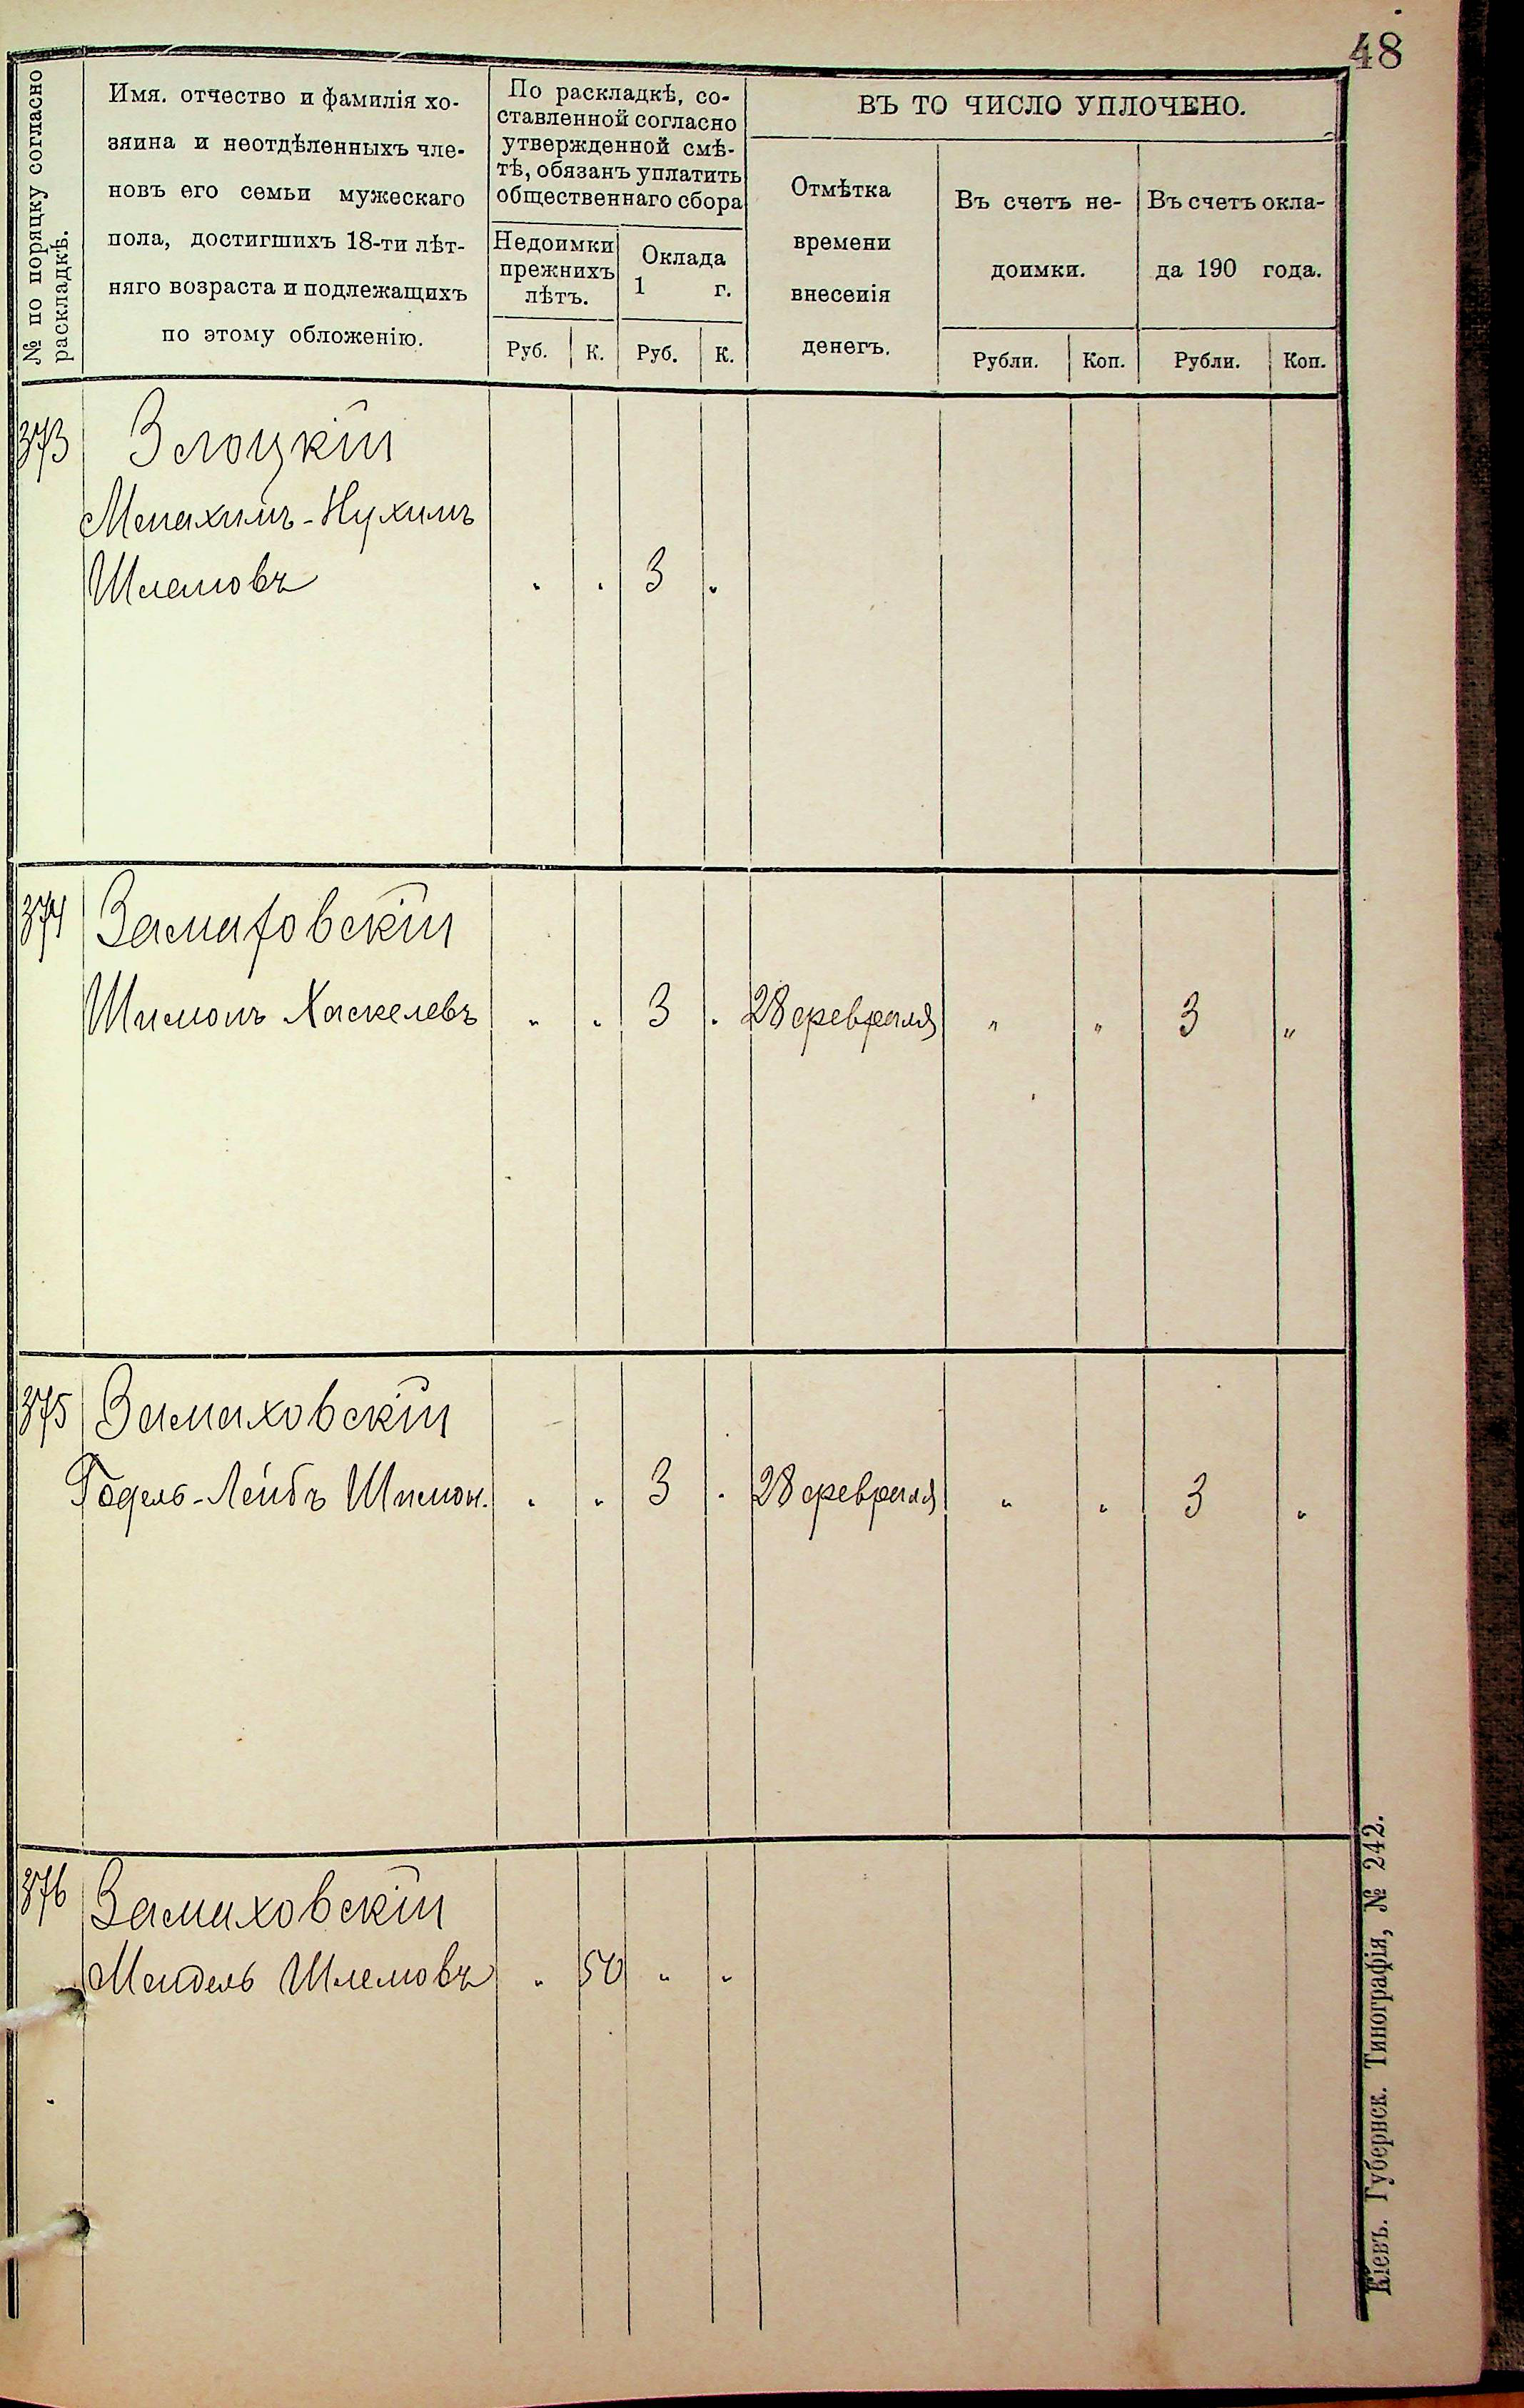 48
№ по поряцку согласно
раскладкѣ.
Имя. отчество и фамилія хо-
зяина и неотдѣленныхъ чле-
новъ его семьи мужескаго
пола, достигшихъ 18-ти лѣт-
няго возраста и подлежащихъ
по этому обложенію.
По раскладкѣ, со-
ставленной согласно
утвержденной смѣ-
тѣ, обязанъ уплатить
общественнаго сбора
Недоимки
прежнихъ
лѣтъ.
Руб. К.
Оклада
1 г.
Руб. К.
ВЪ ТО ЧИСЛО УПЛОЧЕНО.
Отмѣтка
времени
внесенія
денегъ.
Въ счетъ не-
доимки.
Рубли. Коп.
Въ счетъ окла-
да 190 года.
Рубли. Коп.
373 Злоцкій
Менахимъ-Нухимъ
Шлемовъ „ „ 3 „
374 Замаховскій
Шимонъ Хаскелевъ „ „ 3 „ 28 февраля „ „ 3 „
375 Замаховскій
Годель-Лейбъ Шимон. „ „ 3 „ 28 февраля „ „ 3 „
376 Замаховскій
Мендель Шлемовъ „ 50 „ „
Кіевъ. Губернск. Типографія, № 242.